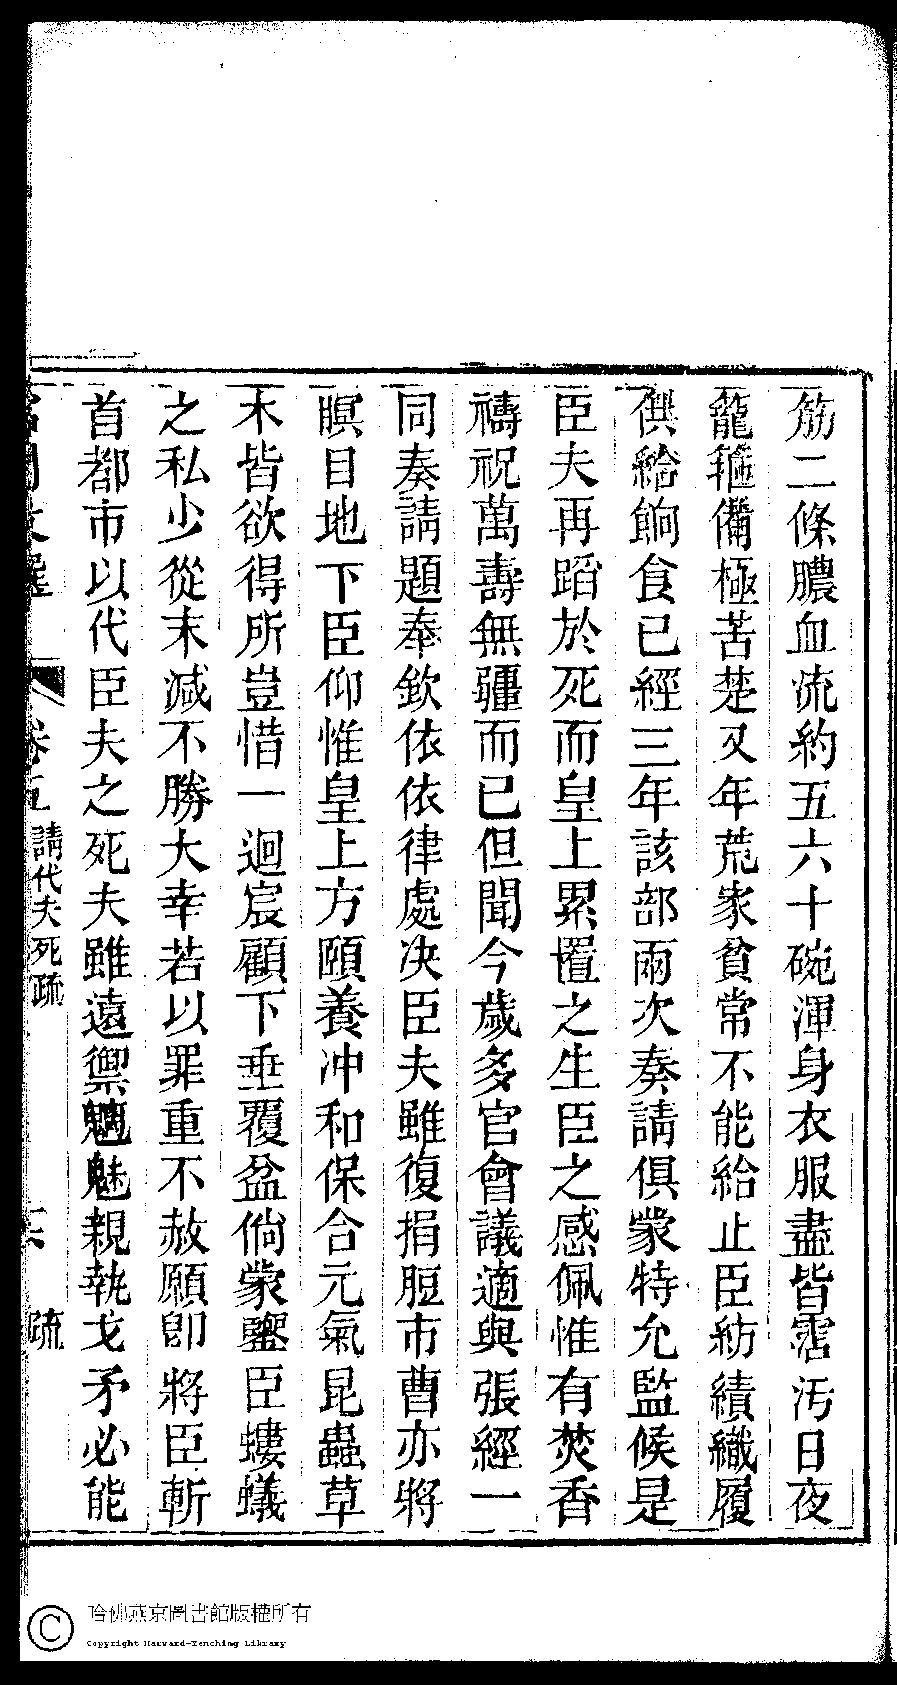 筋二條膿血流約五六十碗渾身衣服盡皆霑汚日夜
籠箍備極苦楚又年荒家貧常不能給止臣紡績織履
供給餉食已經三年該部兩次奏請俱蒙特允監候是
臣夫再蹈於死而皇上累置之生臣之感佩惟有焚香
禱祝萬壽無疆而已但聞今歲多官會議適與張經一
同奏請題奉欽依依律處决臣夫雖復捐脰市曹亦將
瞑目地下臣仰惟皇上方頤養冲和保合元氣昆蟲草
木皆欲得所豈惜一迴宸顧下垂覆盆倘蒙鑒臣螻蟻
之私少從末減不勝大幸若以罪重不赦願卽將臣斬
首都市以代臣夫之死夫雖遠禦魍魅親執戈矛必能
卷五 請代夫死疏 疏
哈佛燕京圖書館版權所有
Copyright Harvard-Yenching Library